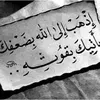 إذهب إلى الله بضعفك
يأتيك بقوته